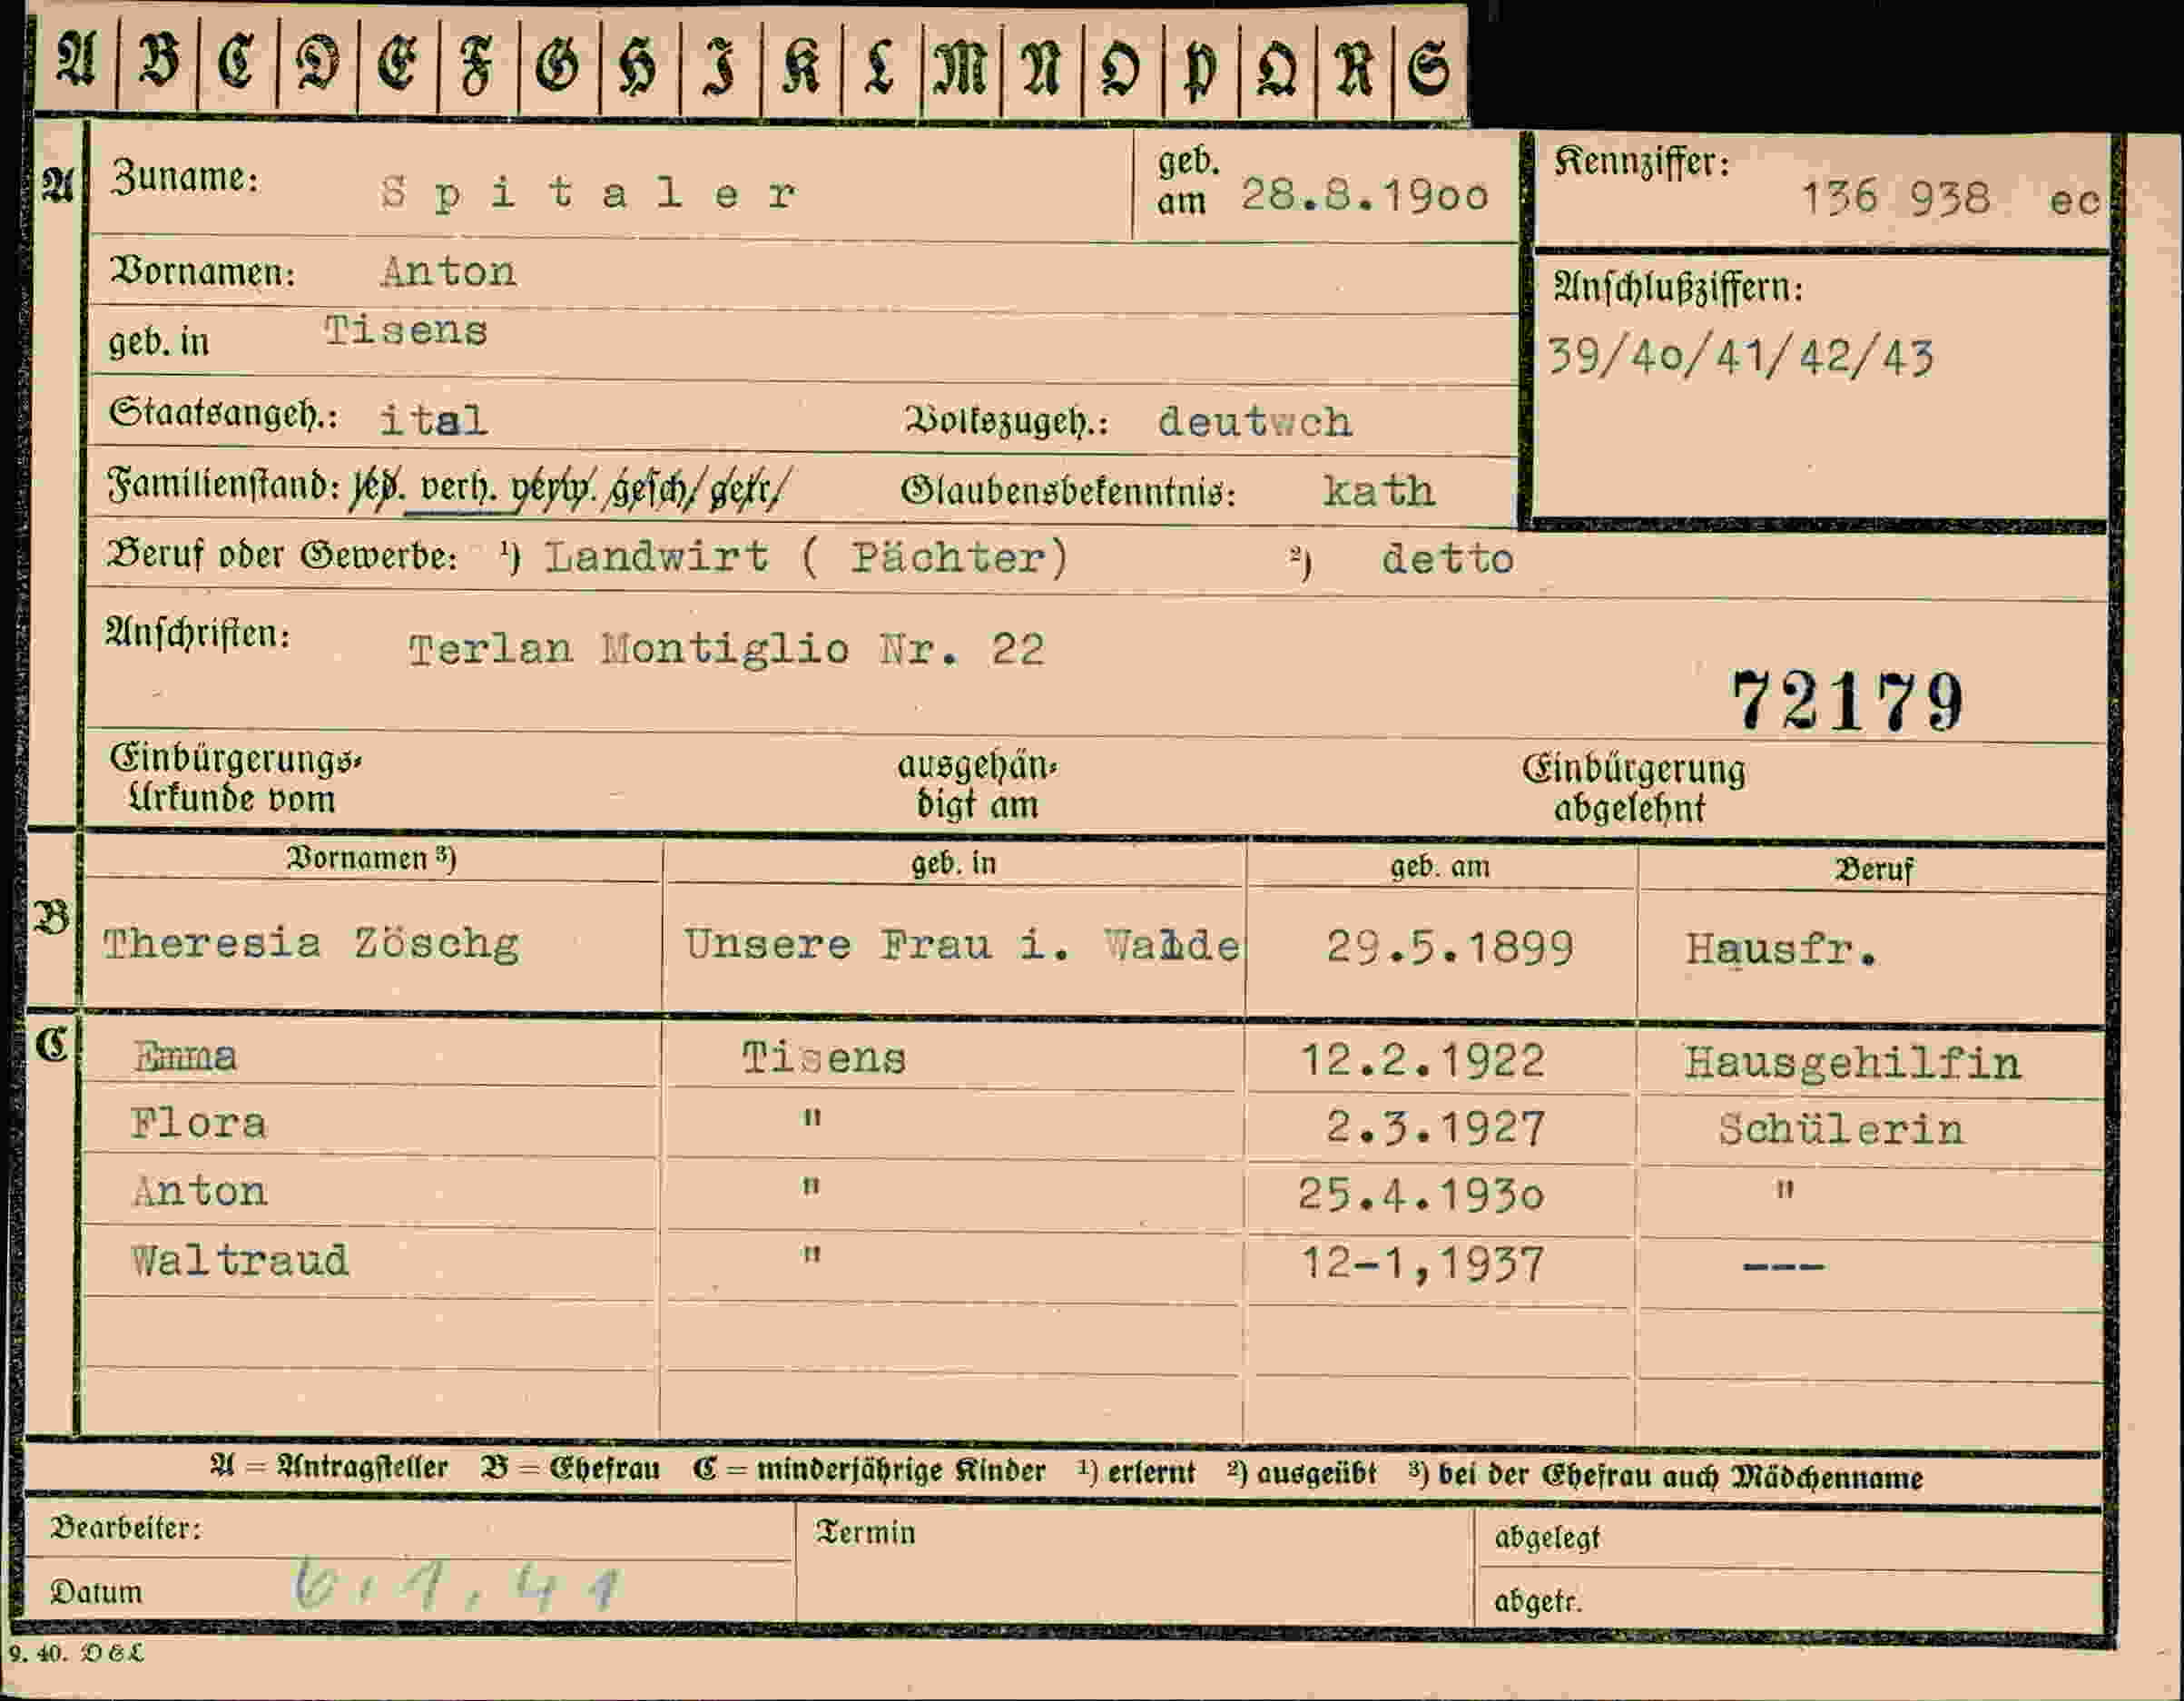 A B C D E F G H I K L M N O P Q R S
A Zuname: Spitaler geb. am 28.8.19oo Kennziffer: 136 938 ec
Vornamen: Anton Anschlußziffern:
geb. in Tisens 39/4o/41/42/43
Staatsangeh.: ital Volkszugeh.: deutwch
Familienstand: led. verh. verw. gesch/ getr/ Glaubensbekenntnis: kath
Beruf oder Gewerbe: ¹) Landwirt ( Pächter) ²) detto
Anschriften: Terlan Montiglio Nr. 22
72179
Einbürgerungs- ausgehän- Einbürgerung
Urkunde vom digt am abgelehnt
Vornamen ³) geb. in geb. am Beruf
B Theresia Zöschg Unsere Frau i. Walde 29.5.1899 Hausfr.
C Emma Tisens 12.2.1922 Hausgehilfin
Flora " 2.3.1927 Schülerin
Anton " 25.4.193o "
Waltraud " 12-1,1937 ---
A = Antragsteller B = Ehefrau C = minderjährige Kinder ¹) erlernt ²) ausgeübt ³) bei der Ehefrau auch Mädchenname
Bearbeiter: Termin abgelegt
Datum 6.1.41 abgetr.
9. 40. D&L